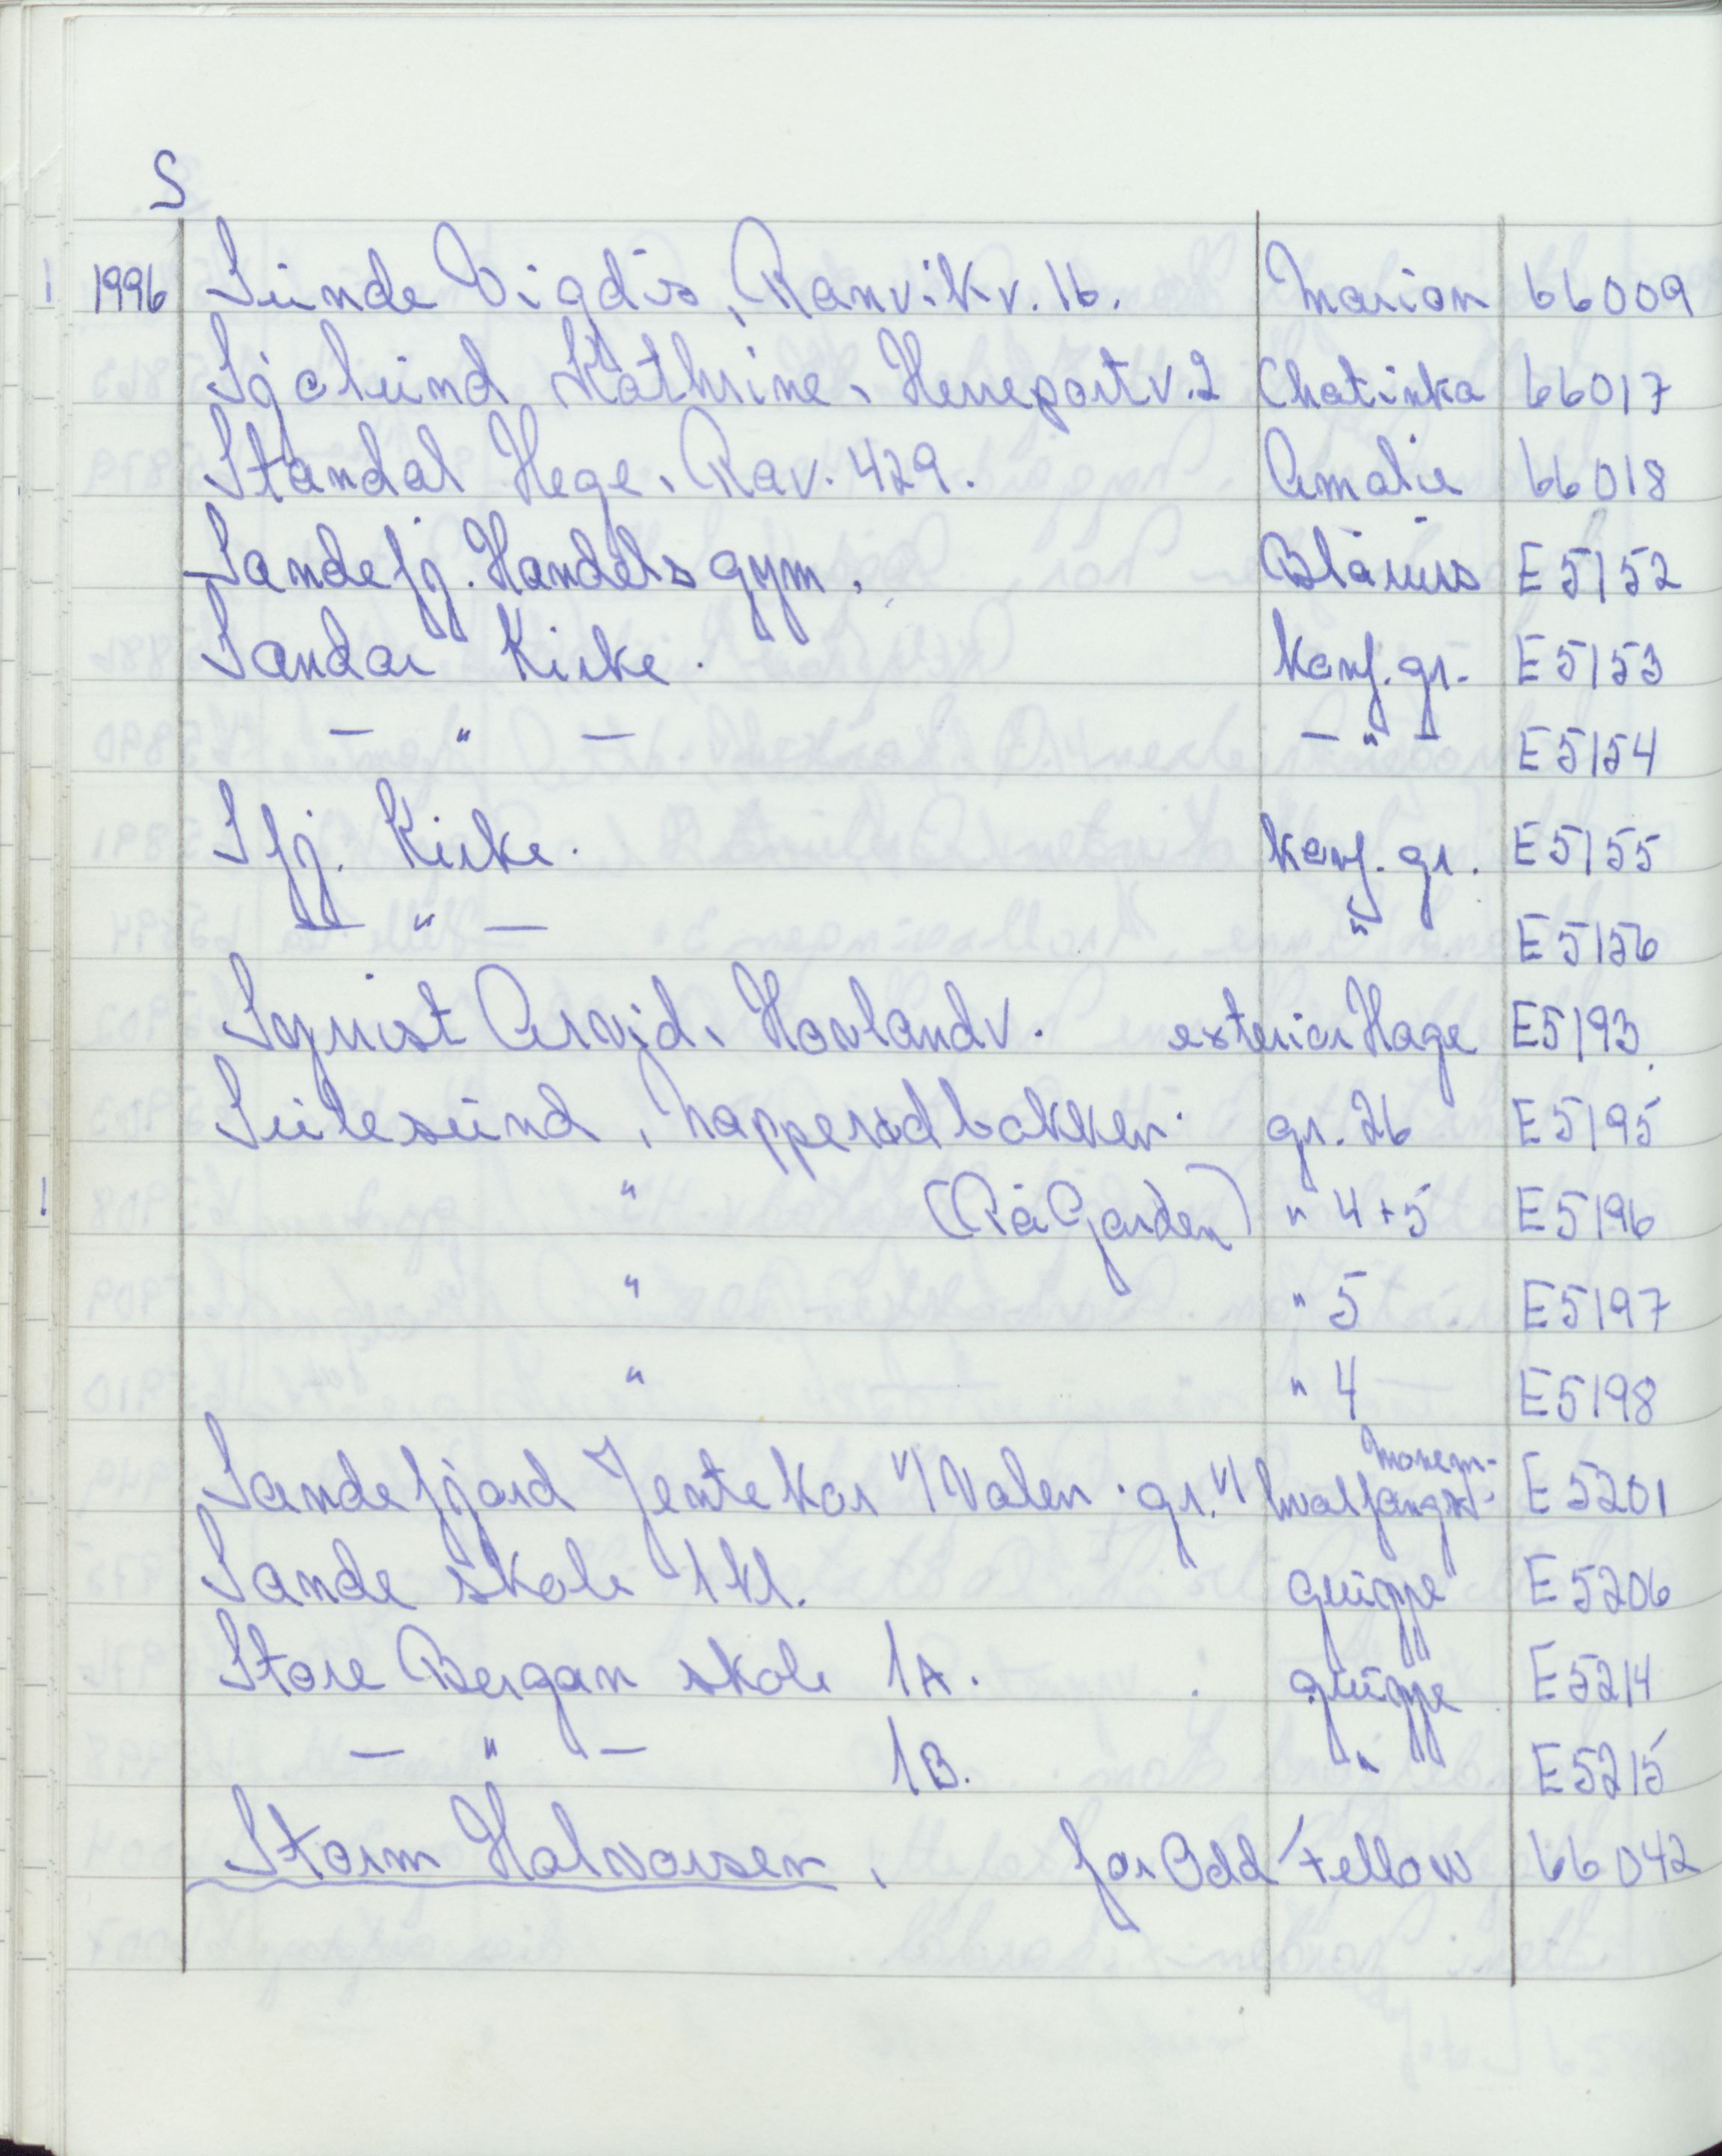 S
1996 Sunde Vigdis, Ranvikv. 16. Marion 66009
Sjølund Kathrine, Herreportv. 2 Chatinka 66017
Standal Hege, Rav. 429. Amalie 66018
Sandefj. Handelsgym. Blåruss E5152
Sandar Kirke. Konf. gr. E5153
— " — — " — E5154
Sfj. Kirke. Konf. gr. E5155
— " — " E5156
Syrrist Arvid, Hovlandv. exteriør Hage E5193
Sulesund, Napperødbakken. gr. 26 E5195
" (På Garden) " 4+5 E5196
" " 5 E5197
" " 4 E5198
Sandefjord Jentekor v/Valen. gr. v/ hvalfangst- monum. E5201
Sande skole 1 kl. gruppe E5206
Store Bergan skole 1A. gruppe E5214
— " — 1B. " E5215
Storm Halvorsen, for Odd Fellow 66042